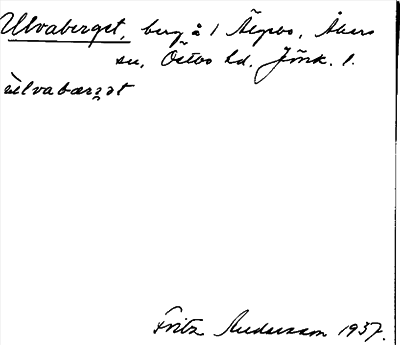 Ulvaberget, berg å 1 Älgbo, Åkers
sn, Östbo hd. Jönk. l.
ùlvabærgət
Fritz Andersson 1937.